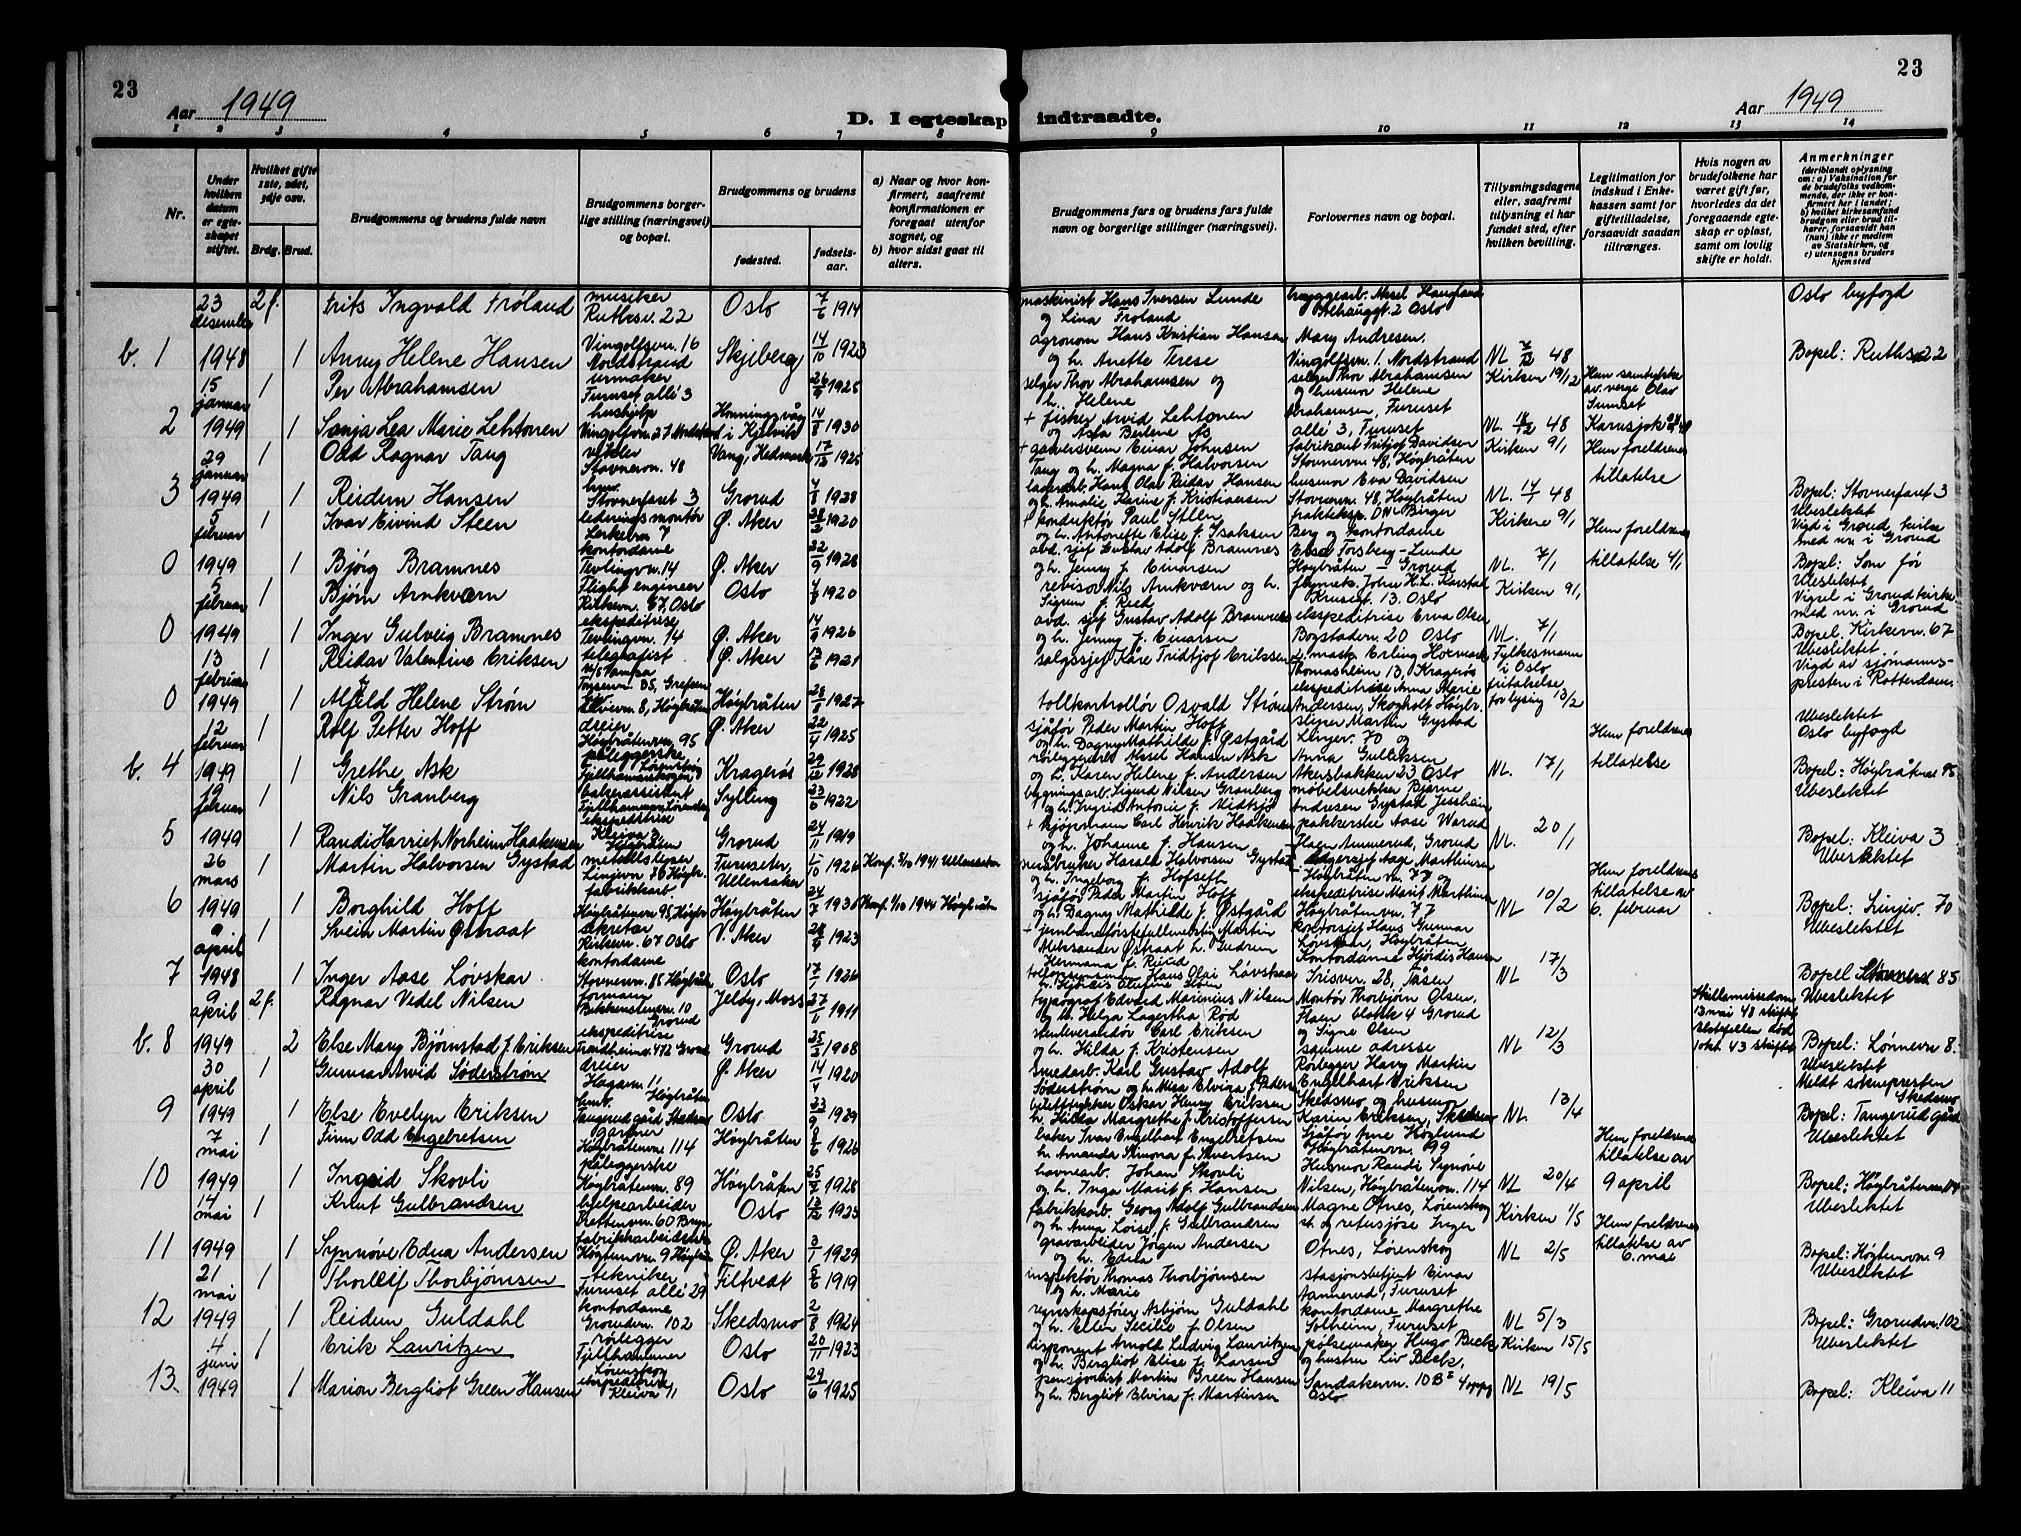 23
Aar 1949
D. I egteskap indtraadte.
Aar 1949
23
1 2 3 4 5 6 7 8 9 10 11 12 13 14
Nr.
Under hvilken datum er egteskapet stiftet.
Hvilket gifte 1ste, 2det, 3dje osv.
Brdg. Brud.
Brudgommens og brudens fulde navn
Brudgommens borgerlige stilling (næringsvei) og bopæl.
Brudgommens og brudens
fødested.
fødselsaar.
a) Naar og hvor konfirmert, saafremt konfirmationen er foregaat utenfor sognet, og
b) hvor sidst gaat til alters.
Brudgommens fars og brudens fars fulde navn og borgerlige stillinger (næringsvei).
Forlovernes navn og bopæl.
Tillysningsdagene eller, saafremt tillysning ei har fundet sted, efter hvilken bevilling.
Legitimation for indskud i Enkekassen samt for giftetilladelse, forsaavidt saadan tiltrænges.
Hvis nogen av brudefolkene har været gift før, hvorledes da det foregaaende egteskap er opløst, samt om lovlig skifte er holdt.
Anmerkninger
(deriblandt oplysning om: a) Vaksination for de brudefolks vedkommende, der ikke er konfirmert her i landet; b) hvilket kirkesamfund brudgom eller brud tilhører, forsaavidt han (hun) ikke er medlem av Statskirken, og c) utensogns bruders hjemsted
23 desember 2f. Frits Ingvald Frøland musiker Ruthsv. 22 Oslo 7/6 1914 maskinist Hans Iversen Lunde og Lina Frøland Oslo byfogd
b. 1 1948 1 Anny Helene Hansen Vingolfsvn. 16 Nordstrand Skjeberg 14/10 1923 agronom Hans Kristian Hansen og h. Anette Terese Mary Andresen, Vingolfsvn. 1. Nordstrand NL 48 Bopel: Ruthsv 22
15 januar 1 Per Abrahamsen urmaker Furuset alle 3 26/9 1925 selger Thor Abrahamsen og h. Helene selger Thor Abrahamsen og husmor Helene Kirken 19/12 Hun samtykke av verge Olav
2 1949 1 Sonja Lea Marie Lehtonen hushjelp Vingolfvn. 27 Nordstrand Honningsvåg i Kjelvik 14/8 1930 + fisker Arvid Lehtonen Abrahamsen, Furuset alle 3, Furuset NL. 48 Karasjok
29 januar 1 Odd Ragnar Tang vikler Stovnervn. 48 Vang, Hedmark 17/12 1925 Tang og h. Magna f. Halvorsen fabrikant Fritjof Davidsen Stovnervn 48, Høybråten Kirken 9/1 Hun foreldrenes
3 1949 1 Reidun Hansen Stovnerfaret 3 Grorud 4/8 1928 lagerarb. Hans Olaf Reidar Hansen og h. Amalie Karine f. Kristiansen husmor Eva Davidsen Stovnervn. 48, Høybråten NL. 48 tillatelse Bopel: Stovnerfaret 3 Ubeslektet
5 februar 1 Ivar Eivind Steen ledningsmontør Lerkebn 7 Ø. Aker 28/2 1920 + konduktør Paul Steen og h. Antonette Elise f. Isaksen Berg og kontordame Kirken 9/1 Hun foreldrenes Vigd i Grorud kirke med nr. i Grorud
0 1949 1 Bjørg Bramnes kontordame Tevlingvn. 14 Ø. Aker 22/9 1928 avd. sjef Gustav Adolf Bramnes og h. Jenny f. Einarsen Elsa Forsberg-Lunde Høybråten - Grorud NL. 7/1 tillatelse 4/1 Bopel: Som før Ubeslektet
5 februar 1 Bjørn Arnkværn Flight engineer Kirkevn. 67, Oslo Oslo 4/8 1920 revisor Nils Arnkværn og h. Sigrun f. Ruud Kirken 9/1 Viged i Grorud kirke med nr. i Grorud
0 1949 1 Inger Gulveig Bramnes ekspeditrise Tevlingvn. 14 Ø. Aker 14/9 1926 avd. sjef Gustav Adolf Bramnes og h. Jenny f. Einarsen ekspeditrise Erna Olsen Bogstadvn. 20 Oslo NL. 7/1 Bopel. Kirkevn. 67 Ubeslektet.
13 februar 1 Reidar Valentine Eriksen telegrafist Ø. Aker 13/6 1921 salgssjef Kåre Fridtjof Eriksen Thomasheim 13, Kragerøs Fylkesmann i Oslo Vigd av sjømannspresten i Rotterdam.
0 1949 1 Alfeld Helene Strøm Høybråten 28/8 1927 tollkontrollør Osvald Strøm ekspeditrise Anna Marie Andersen, Skogholt Høybr. fritalelse for lysing 13/2 Ubeslektet
12 februar 1 Rolf Petter Hoff dreier Høybråtenvn. 95 Ø. Aker 22/4 1925 sjåfør Peder Martin Hoff og h. Dagny Mathilde f. Østgård sliper Martin Gystad Linjev. 70 og Hun foreldrenes Oslo byfogd
b. 4 1949 1 Grethe Ask Kragerøs 29/12 1928 rørleggerarb. Aksel Hansen Ask og h. Karen Helene f. Andersen Anna Gulliksen Akersbakken 23 Oslo NL. 17/1 tillatelse Bopel: Høybråtenv 95 Ubeslektet
19 februar 1 Nils Granberg bakerassistent Fjellhamar, Lørenskog Sylling 23/6 1922 bygningsarb. Sigurd Nilsen Granberg og h. Ingrid Antonie f. Midtsjø møbelsnekker Bjarne Andresen Gystad Jessheim
5 1949 1 Randi Harriet Norheim Haakensen ekspeditrise Kleiva 3 Grorud 24/11 1919 + kjøpmann Carl Henrik Haakensen og h. Johanne f. Hansen pakkerske Aase Warud Flaen Ammerud, Grorud NL. 20/1 Bopel: Kleiva 3 Ubeslektet
26 mars 1 Martin Halvorsen Gystad metallsliper Linjevn 70 Høybr. Furuseter, Ullensaker 1926 Konf. 1941 Ullensaker småbruker Harald Halvorsen Gystad og h. Ingeborg f. Hofseth lagersjef Aage Marthinsen Høybråtenvn 77 og Hun foreldrenes
6 1949 1 Borghild Hoff fabrikkarb Høybråtenvn 95, Høybr Høybråten 24/7 1930 Konf. 1/10 1944 Høybråten sjåfør Peder Martin Hoff og h. Dagny Mathilde f. Østgård ekspeditrise Marit Marthinsen Høybråtenvn. 77 NL 10/2 tillatelse av 6. februar Bopel: Linjev. 70 Ubeslektet
9 april 1 Svein Martin Østraat sekretær Kirkevn. 67 Oslo V. Aker 28/9 1923 + jernbaneførstefullmektig Martin Aleksander Østraat h. Gudrun Hermana f. Ruud kontorsjef Hans Gunnar Løvskar, Høybråten
7 1948 1 Inger Aase Løvskar kontordame Stovnervn. 85 Høybråten Oslo 17/1 1926 Hans Olai Løvskar Kontordame Hjørdis Hansen Irisvn. 28, Tåsen NL 17/3 Bopel Stovnervd. 85
9 april 2f. Ragnar Vedel Nilsen formann Bekkenstenvn. 10 Grorud Jeløy, Moss 27/1 1911 typograf Edvard Marinius Nilsen og h. Helga Lagertha Rød Montør Thorbjørn Olsen, Flaen blokk 4 Grorud Skilsmissedom 13 mai 48 skiftet Ubeslektet
b. 8 1949 2 Else Mary Bjørnstad f. Eriksen ekspeditrise Trondheimsv. 472 Grorud Grorud 25/2 1908 stenleverandør Carl Eriksen og h. Hilda f. Kristensen og Signe Olsen samme adresse NL 12/3 død 1 okt. 43 skiftet Bopel: Lønnevn 8. Ubeslektet
30 april 1 Gunnar Arvid Söderstrøm dreier Hagavn 11, Høybråten Ø. Aker 14/4 1920 Smedarb. Karl Gustav Adolf Søderstrøm og h. Misa Elvira f. Pedersen Rørlegger Harry Martin Engelhart Eriksen Meldt soknepresten Skedsmo
9 1949 1 Else Evelyn Eriksen Tangerud gård Oslo 23/9 1929 Oskar Henry Eriksen h. Hilda Margrethe f. Kristoffersen Skedsmo og husmor Karin Eriksen, Skedsmo NL. 13/4 Bopel: Tangerud gård
7 mai 1 Finn Odd Engebretsen gartner Høybråtenvn. 114 Høybråten 8/6 1926 baker Ivar Engelhart Engebretsen h. Amanda Simora f. Sivertsen Sjåfør Arne Høglund Høybråtenvn. 99 Hun foreldrenes tillatelse av Ubeslektet
10 1949 1 Ingrid Skovli påleggerske Høybråtenvn. 89 Høybråten 25/7 1928 havnearb. Johan Skovli og h. Inga Marit f. Hansen Husmor Randi Synøve Nilsen, Høybråtenvn. 114 NL 20/4 9 april Bopel: Høybråtenvn 114 Ubeslektet
14 mai 1 Knut Gulbrandsen hjelpearbeider Brettenvn. 60 Bryn Oslo 13/12 1925 fabrikkarb. Georg Adolf Gulbrandsen og h. Anna Loise f. Gulbrandsen Magne Otnes, Lørenskog Kirken 1/5 Hun foreldrenes
11 1949 1 Synnøve Edna Andersen fabrikkarbeiderske Høgtunvn. 9 Høybråten Ø. Aker 3/1 1929 gravarbeider Jørgen Andersen og h. Edila Otnes, Lørenskog NL 2/5 tillatelse av 6. mai Bopel: Høgtunvn. 9 Ubeslektet
21 mai 1 Thorleif Thorbjørnsen tekniker Furuset alle 29 Filtvedt 5/6 1919 inspektør Thomas Thorbjørnsen og h. Marie stasjonsbetjent Einar Aannerud, Furuset
12 1949 1 Reidun Guldahl kontordame Grorudvn. 102 Skedsmo 2/8 1924 regnskapsfører Asbjørn Guldahl og h. Ellen Secilie f. Olsen kontordame Margrethe Solheim, Furuset NL 5/3 Bopel: Grorudvn. 102 Ubeslektet
4 juni 1 Erik Lauritzen rørlegger Fjellhammer Lørenskog Oslo 20/11 1923 disponent Arnold Ludvig Lauritzen og h. Bergliot Elise f. Larsen pølsemaker Hugo Beck og hustru Liv Beck, Kirken 15/5
13. 1949 1 Marion Bergliot Green Hansen ekspeditrise Kleiva 11 Oslo 29/6 1925 pensjonist Martin Green Hansen og h. Bergliot Elvira f. Martinsen Sandakervn. 10 B Oslo NL 19/5 Bopel: Kleiva 11